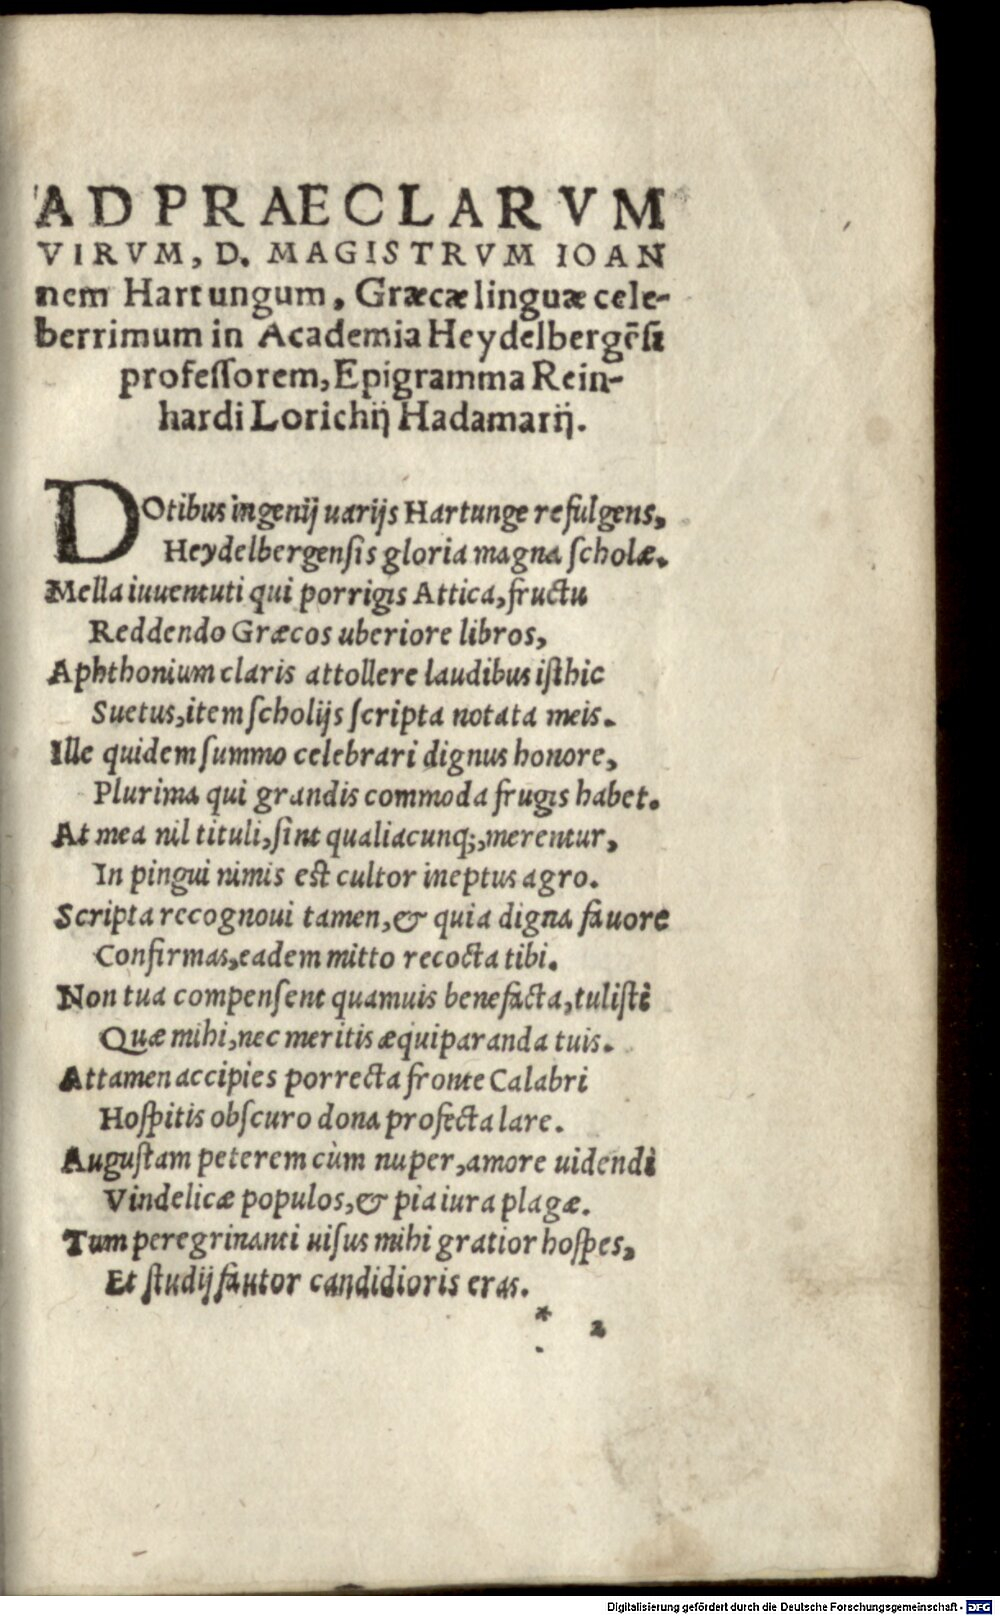 AD PRAECLARVM
VIRVM, D. MAGISTRVM IOAN
nem Hartungum, Græcæ linguæ cele-
berrimum in Academia Heydelbergẽsi
professorem, Epigramma Rein-
hardi Lorichij Hadamarij.
DOtibus ingenij uarijs Hartunge refulgens,
Heydelbergensis gloria magna scholæ.
Mella iuuentuti qui porrigis Attica, fructu
Reddendo Græcos uberiore libros,
Aphthonium claris attollere laudibus isthic
Suetus, item scholijs scripta notata meis.
Ille quidem summo celebrari dignus honore,
Plurima qui grandis commoda frugis habet.
At mea nil tituli, sint qualiacunq;, merentur,
In pingui nimis est cultor ineptus agro.
Scripta recognoui tamen, & quia digna fauore
Confirmas, eadem mitto recocta tibi.
Non tua compensent quamuis benefacta, tulisti
Quæ mihi, nec meritis æquiparanda tuis.
Attamen accipies porrecta fronte Calabri
Hospitis obscuro dona profecta lare.
Augustam peterem cùm nuper, amore uidendi
Vindelicæ populos, & pia iura plagæ.
Tum peregrinanti uisus mihi gratior hospes,
Et studij fautor candidioris eras.
* 2
Digitalisierung gefördert durch die Deutsche Forschungsgemeinschaft - DFG